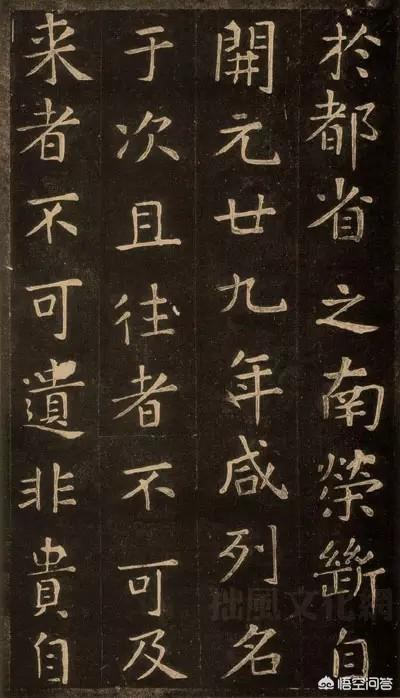 於都省之南榮斷自
開元廿九年咸列名
于次且往者不可及
来者不可遺非貴自
拙風文化網
悟空问答